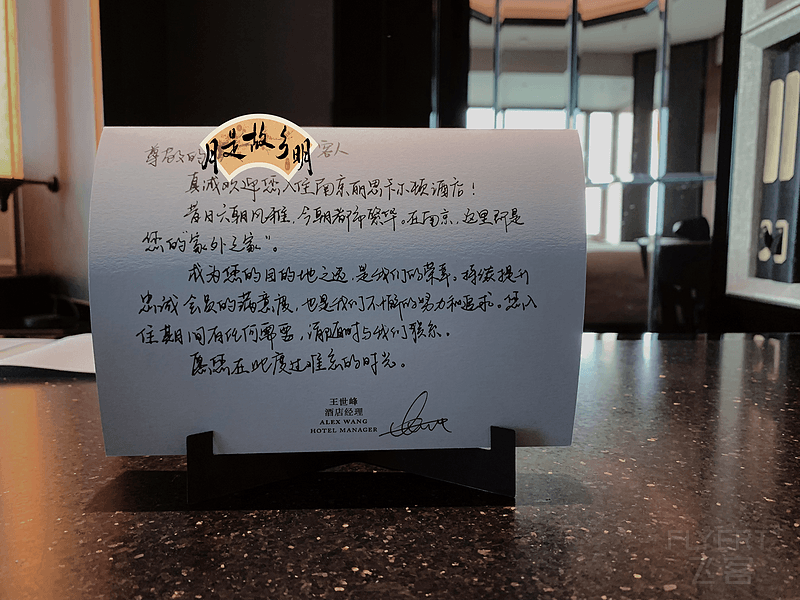 尊敬的 客人
月是故乡明
真诚欢迎您入住南京丽思卡尔顿酒店！
昔日六朝风雅，今朝都市繁华。在南京，这里即是
您的“家外之家”。
成为您的目的地之选，是我们的荣幸。持续提升
忠诚会员的满意度，也是我们不懈的努力和追求。您入
住期间有任何需要，请随时与我们联系。
愿您在此度过难忘的时光。
王世峰
酒店经理
ALEX WANG
HOTEL MANAGER
FLYERT